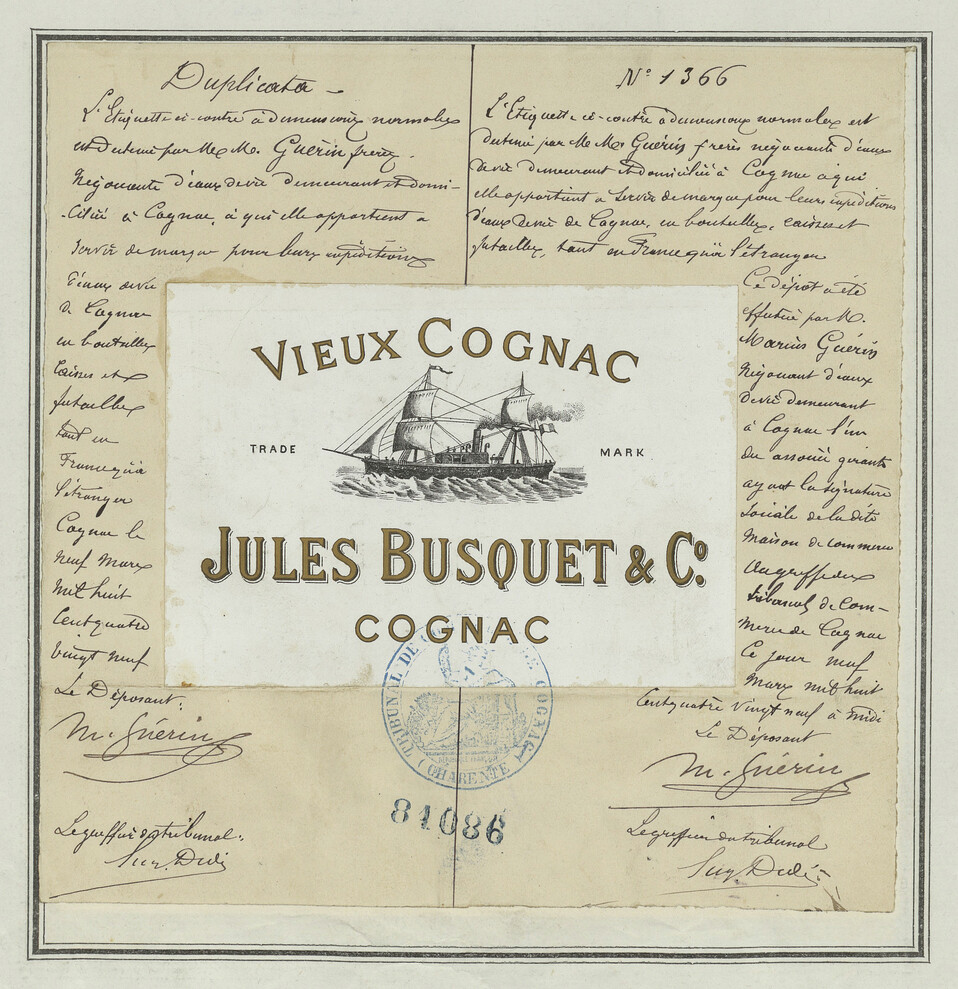 Duplicata
L'Etiquette ci-contre à dimensions normales
est détenue par Mrs M. Guérin frères
Négociants d'eaux de vie demeurant et domi-
-ciliés à Cognac, à qui elle appartient
servir de marque pour leurs expéditions
d'eaux de vie
de Cognac
en bouteilles
Caisses et
futailles
tant en
France qu'à
l'étranger
Cognac le
neuf Mars
mil huit
Cent quatre
vingt neuf
Le Déposant:
M. Guérin
Le greffier du tribunal:
No 1366
L'Etiquette ci-contre à dimensions normales est
détenue par Mrs M. Guérin frères négociants d'eaux
de vie demeurant et domiciliés à Cognac à qui
elle appartient à servir de marque pour leurs expéditions
d'eaux de vie de Cognac, en bouteilles, caisses et
futailles, tant en France qu'à l'étranger
Ce dépôt a été
effectué par M.
Marius Guérin
Négociant d'eaux
de vie demeurant
à Cognac l'un
des associés gérants
ayant la signature
sociale de la dite
Maison de commerce
Au greffe du
tribunal de Com-
merce de Cognac
Ce jour neuf
Mars mil huit
Cent quatre vingt neuf à midi
Le Déposant
M. Guérin
Le greffier du tribunal
VIEUX COGNAC
TRADE MARK
JULES BUSQUET & Co.
COGNAC
TRIBUNAL DE COGNAC
(CHARENTE)
81086